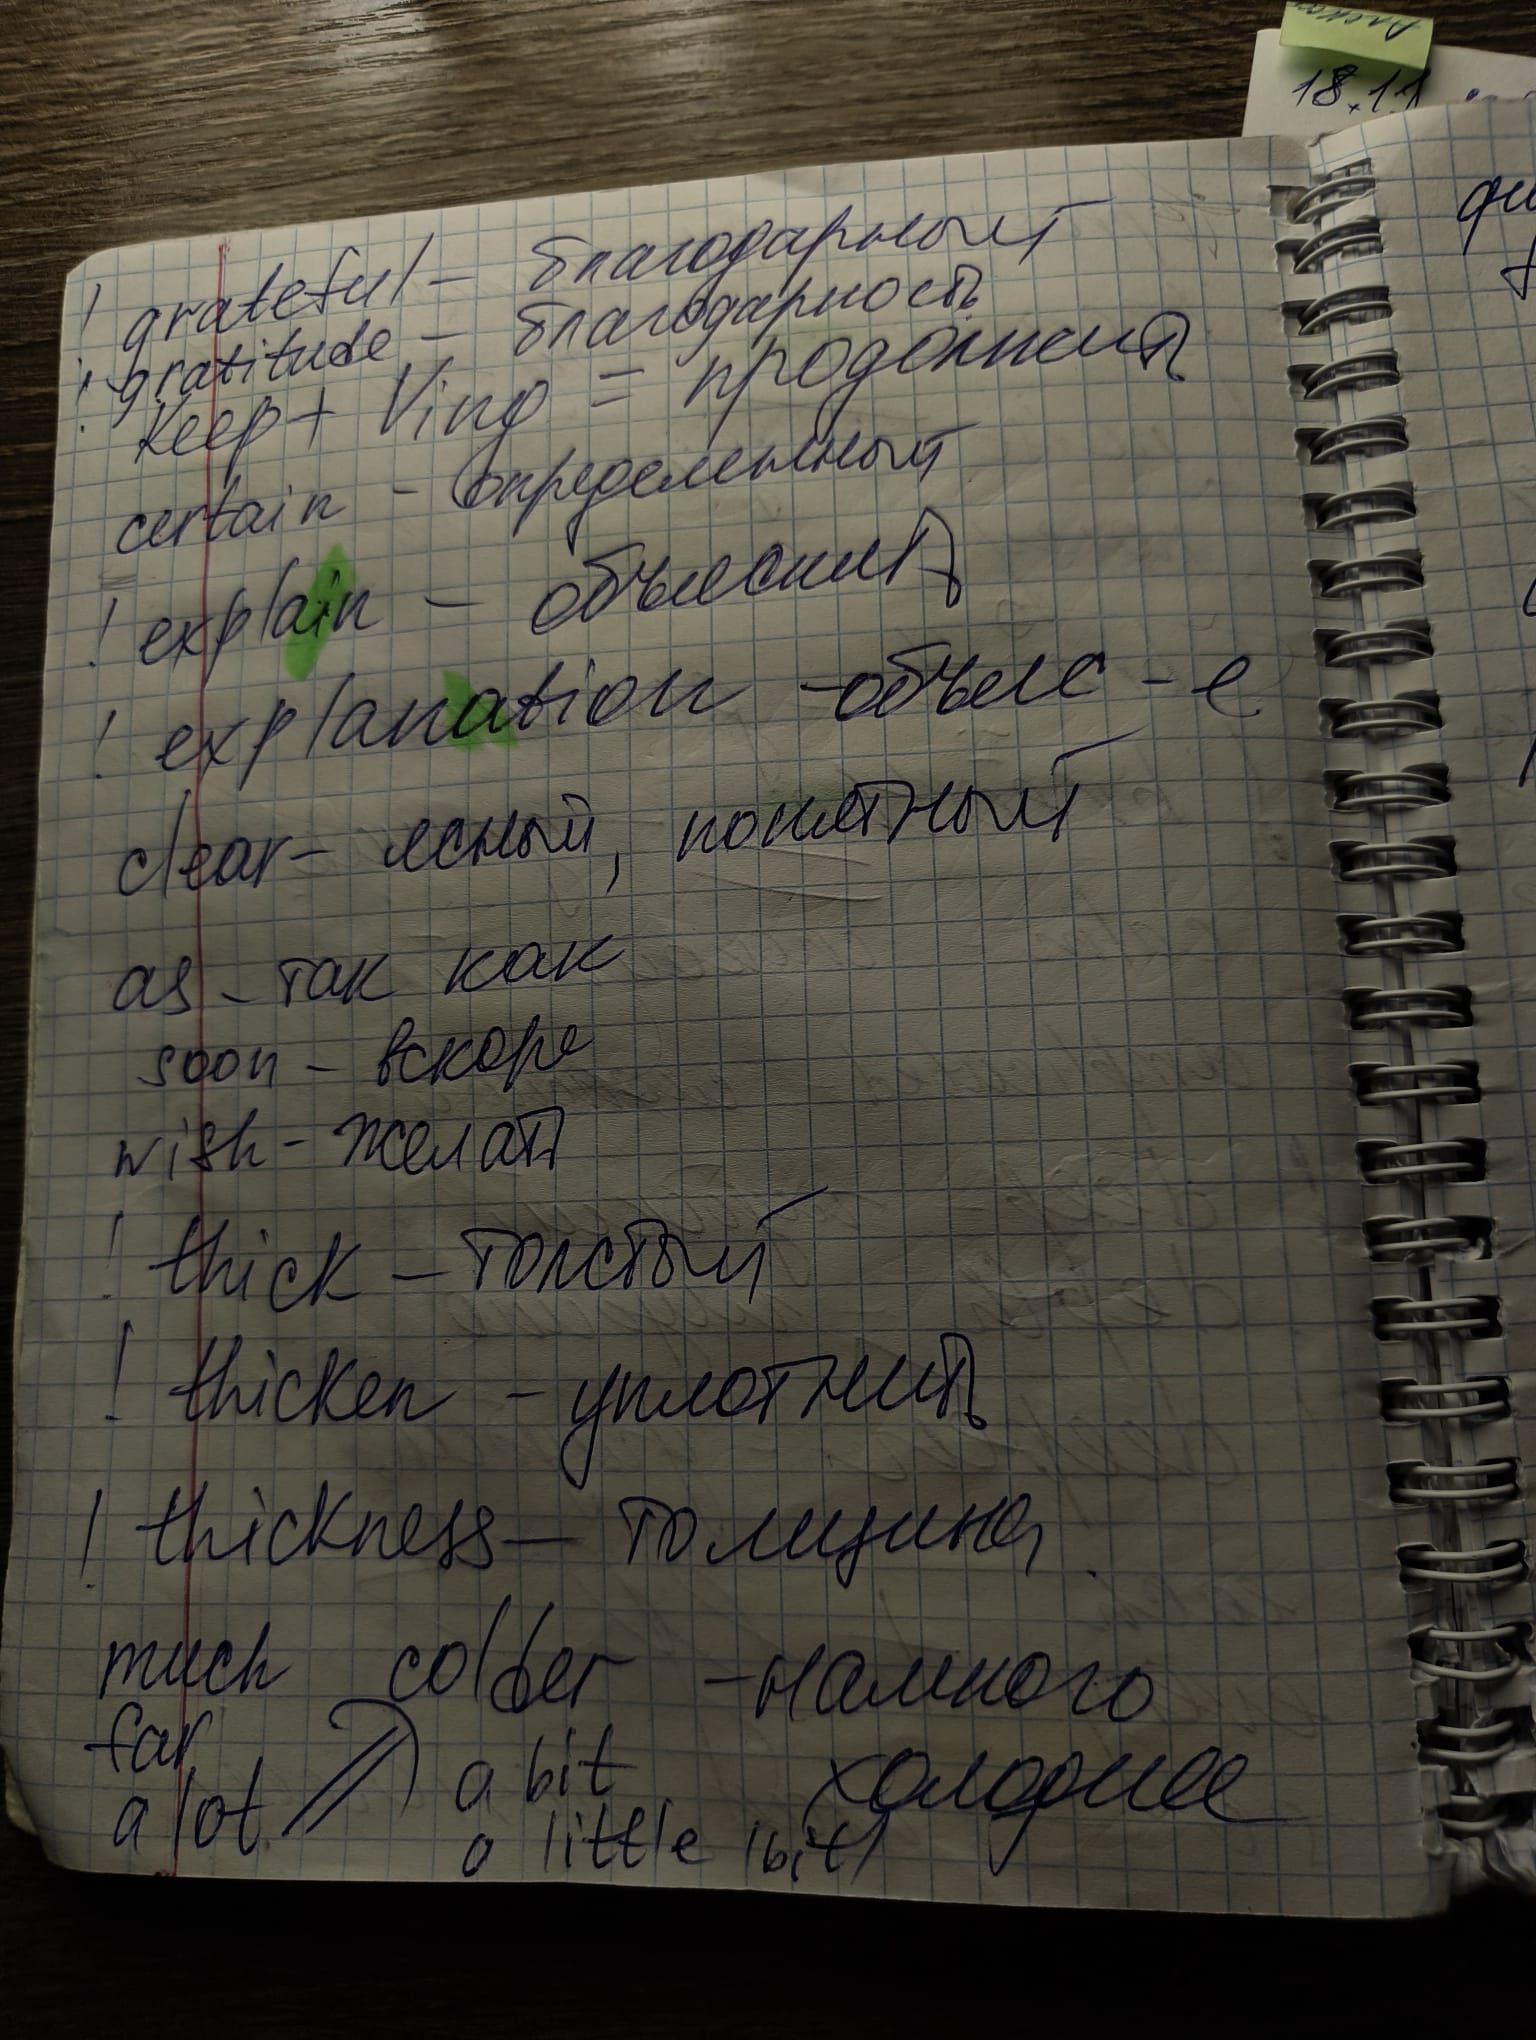 18.11
! grateful – благодарный
! gratitude – благодарность
Keep + Ving = продолжить
certain – определенный
! explain – объяснить
! explanation – объяс-е
clear – ясный, понятный
as – так как
soon – вскоре
wish – желать
! thick – толстый
! thicken – уплотнить
! thickness – толщина
much colder – намного
far
a bit холоднее
a lot
a little (bit)